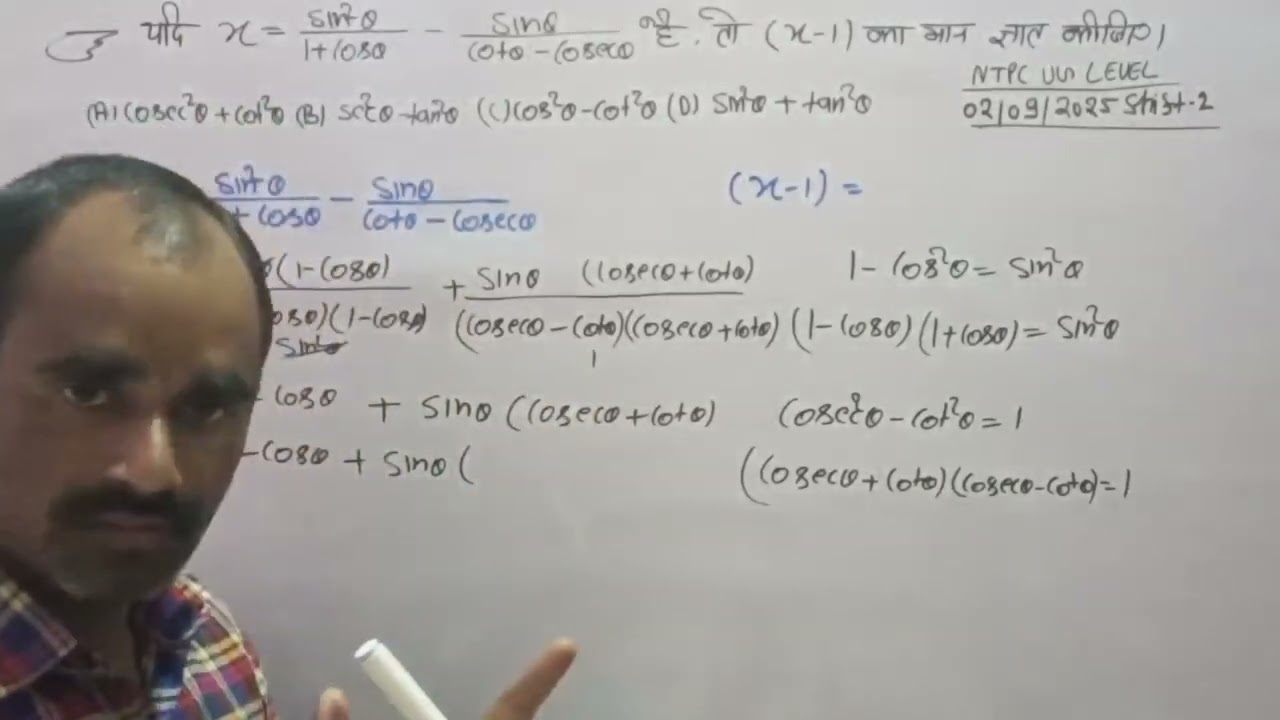 यदि x = sin²θ/1+cosθ - sinθ/cotθ-cosecθ है. तो (x-1) का मान ज्ञात कीजिए।
NTPC UG LEVEL
(A) cosec²θ + cot²θ (B) sec²θ - tan²θ (C) cos²θ - cot²θ (D) sin²θ + tan²θ
02/09/2025 Shist-2
sin²θ/+ cosθ - sinθ/cotθ - cosecθ
(x-1) =
(1-cosθ)/osθ)(1-cosθ) + sinθ (cosecθ+cotθ)/(cosecθ-cotθ)(cosecθ+cotθ)
1 - cos²θ = sin²θ
sin²θ
1
(1-cosθ)(1+cosθ) = sin²θ
cosθ + sinθ (cosecθ+cotθ)
cosec²θ - cot²θ = 1
-cosθ + sinθ (
(cosecθ+cotθ)(cosecθ-cotθ)=1